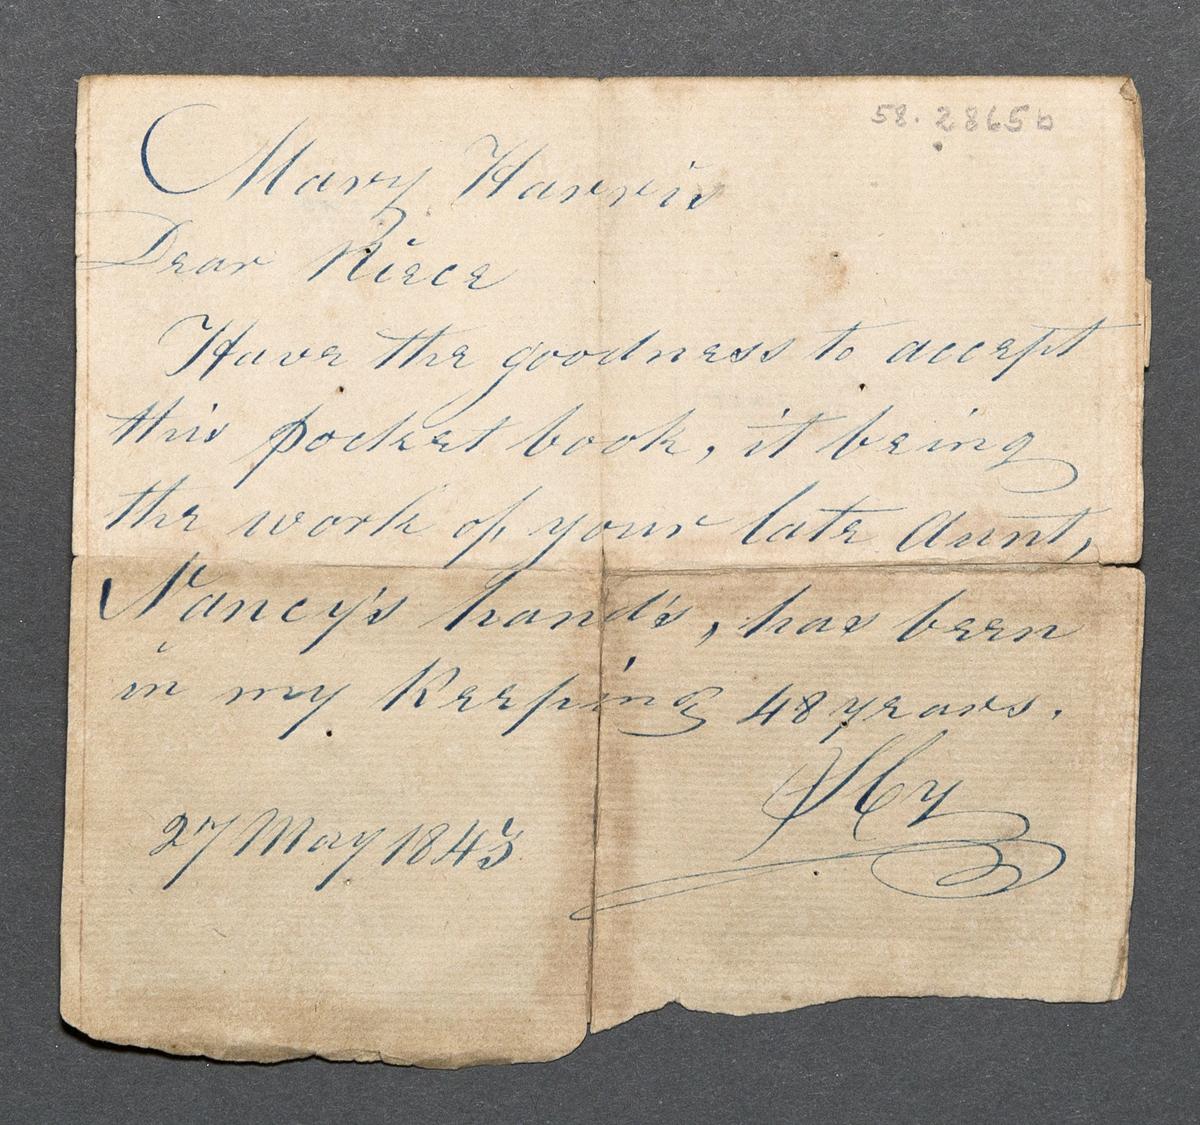 58.2865b
Mary Harris
Dear Niece
Have the goodness to accept
this pocket book, it being
the work of your late Aunt,
Nancy's hand's, has been
in my keeping 48 years.
27 May 1843